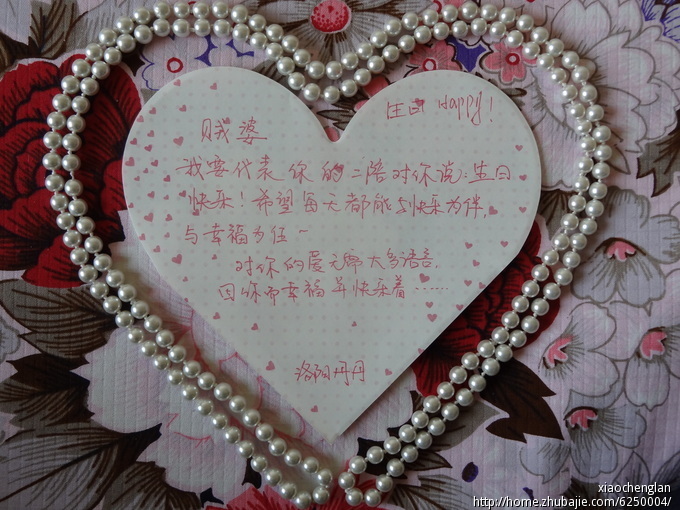 生日 Happy!
贼婆
我要代表你的二陪对你说:生日
快乐!希望每天都能与快乐为伴,
与幸福为伍~
对你的爱无需太多语言,
因你而幸福并快乐着……
洛阳丹丹
xiaochenglan
http://home.zhubajie.com/6250004/